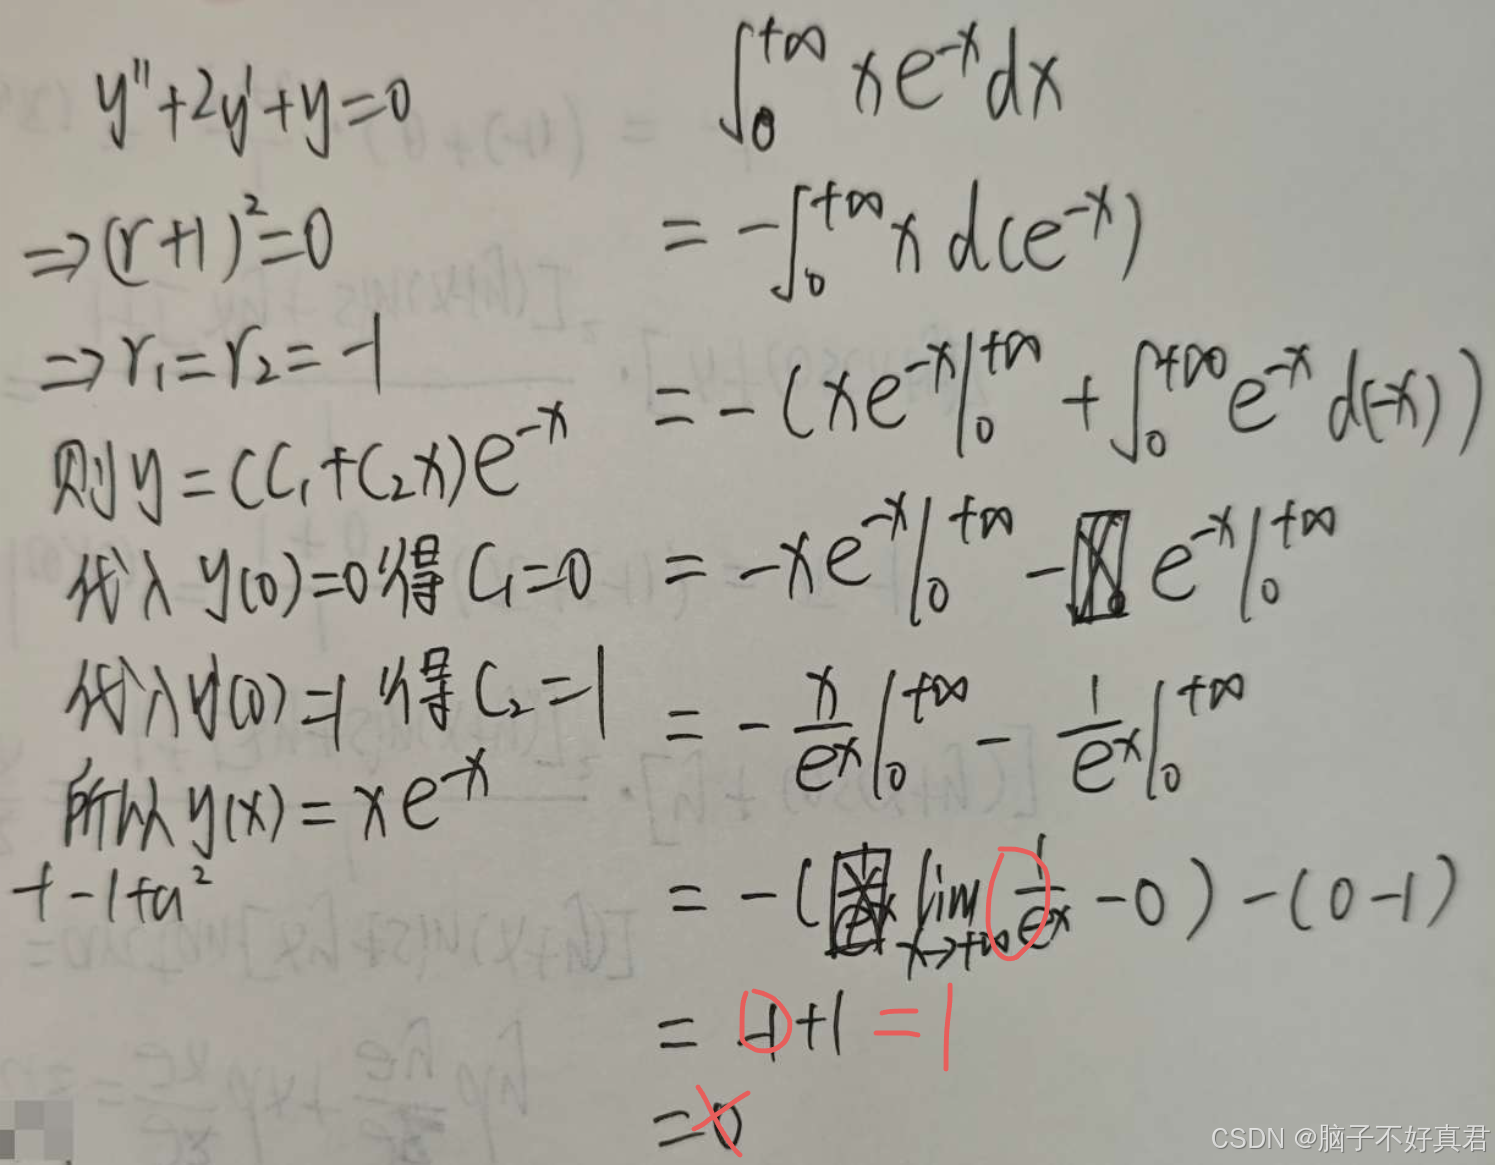 y''+2y'+y=0
⇒(r+1)²=0
⇒r₁=r₂=-1
则y=(C₁+C₂x)e^{-x}
代入y(0)=0得C₁=0
代入y'(0)=1得C₂=1
所以y(x)=xe^{-x}
+-1+a²
∫₀^{+∞} xe^{-x}dx
=-∫₀^{+∞} x d(e^{-x})
=-(xe^{-x}|₀^{+∞}+∫₀^{+∞} e^{-x} d(-x))
=-xe^{-x}|₀^{+∞}-e^{-x}|₀^{+∞}
=-\frac{x}{e^x}|₀^{+∞}-\frac{1}{e^x}|₀^{+∞}
=-(\lim_{x→+∞}\frac{1}{e^x}-0)-(0-1)
=-1+1=1
=0
CSDN @脑子不好真君